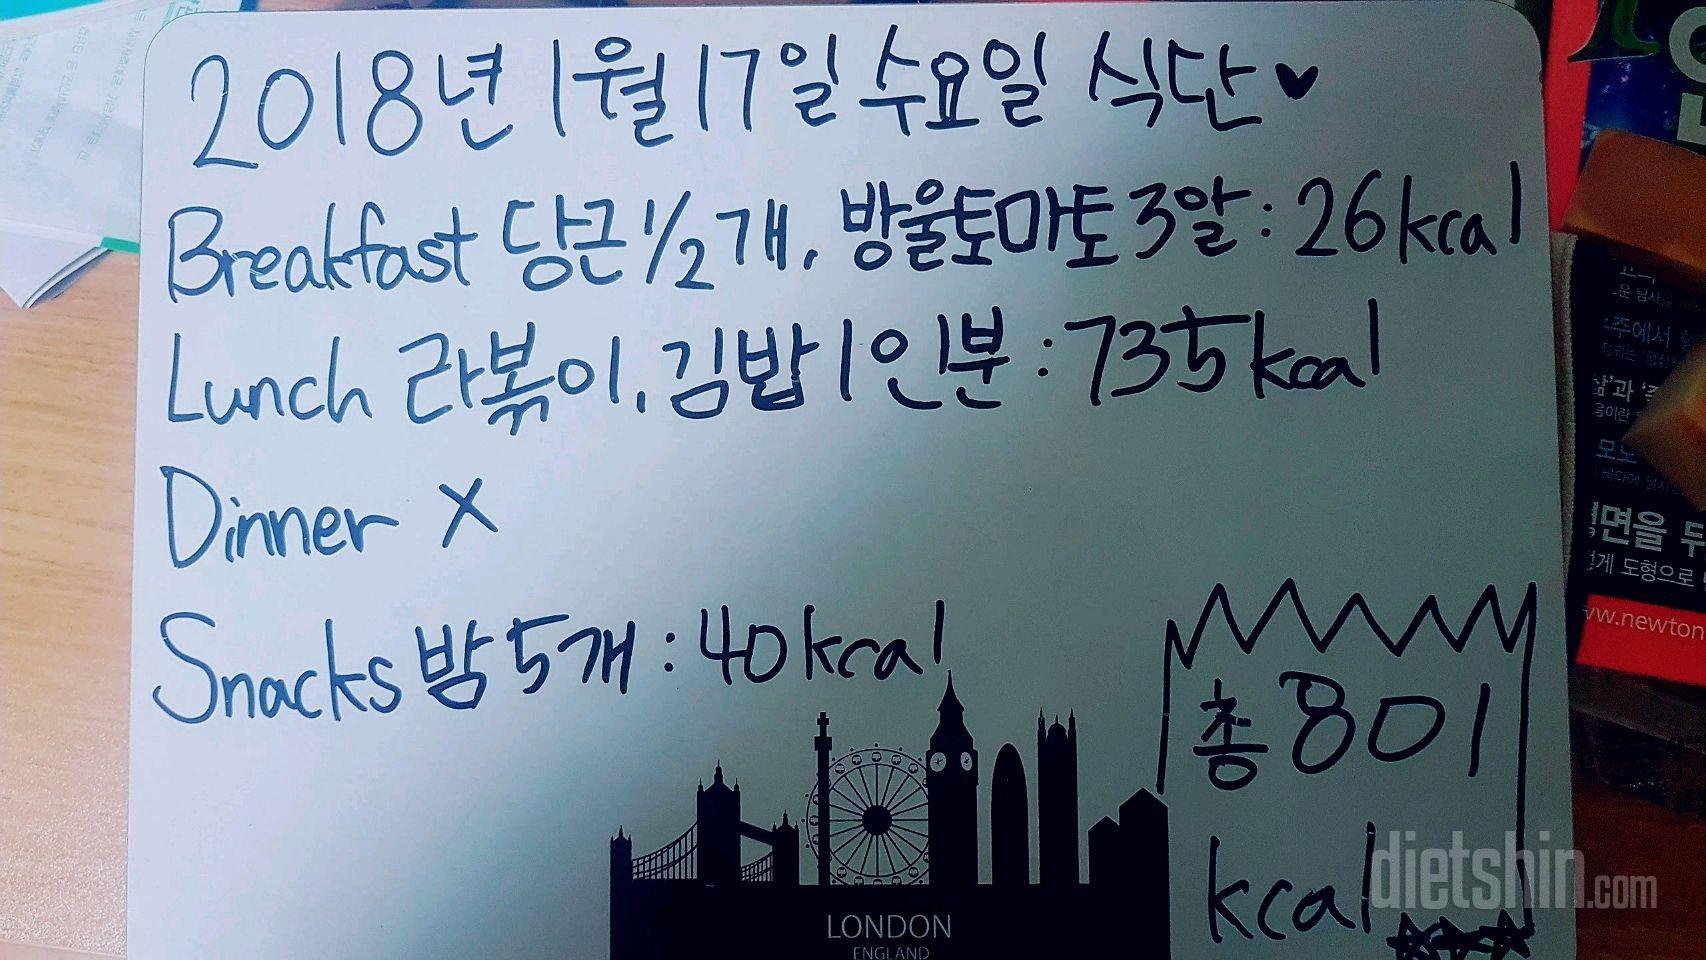 2018년 1월 17일 수요일 식단♥
Breakfast 당근 1/2개, 방울토마토 3알 : 26kcal
Lunch 라볶이, 김밥 1인분 : 735kcal
Dinner X
Snacks 밤 5개 : 40kcal
총 801
kcal
LONDON
ENGLAND
dietshin.com
주에서
삶'과
모노
면을
도형으로
www.newton